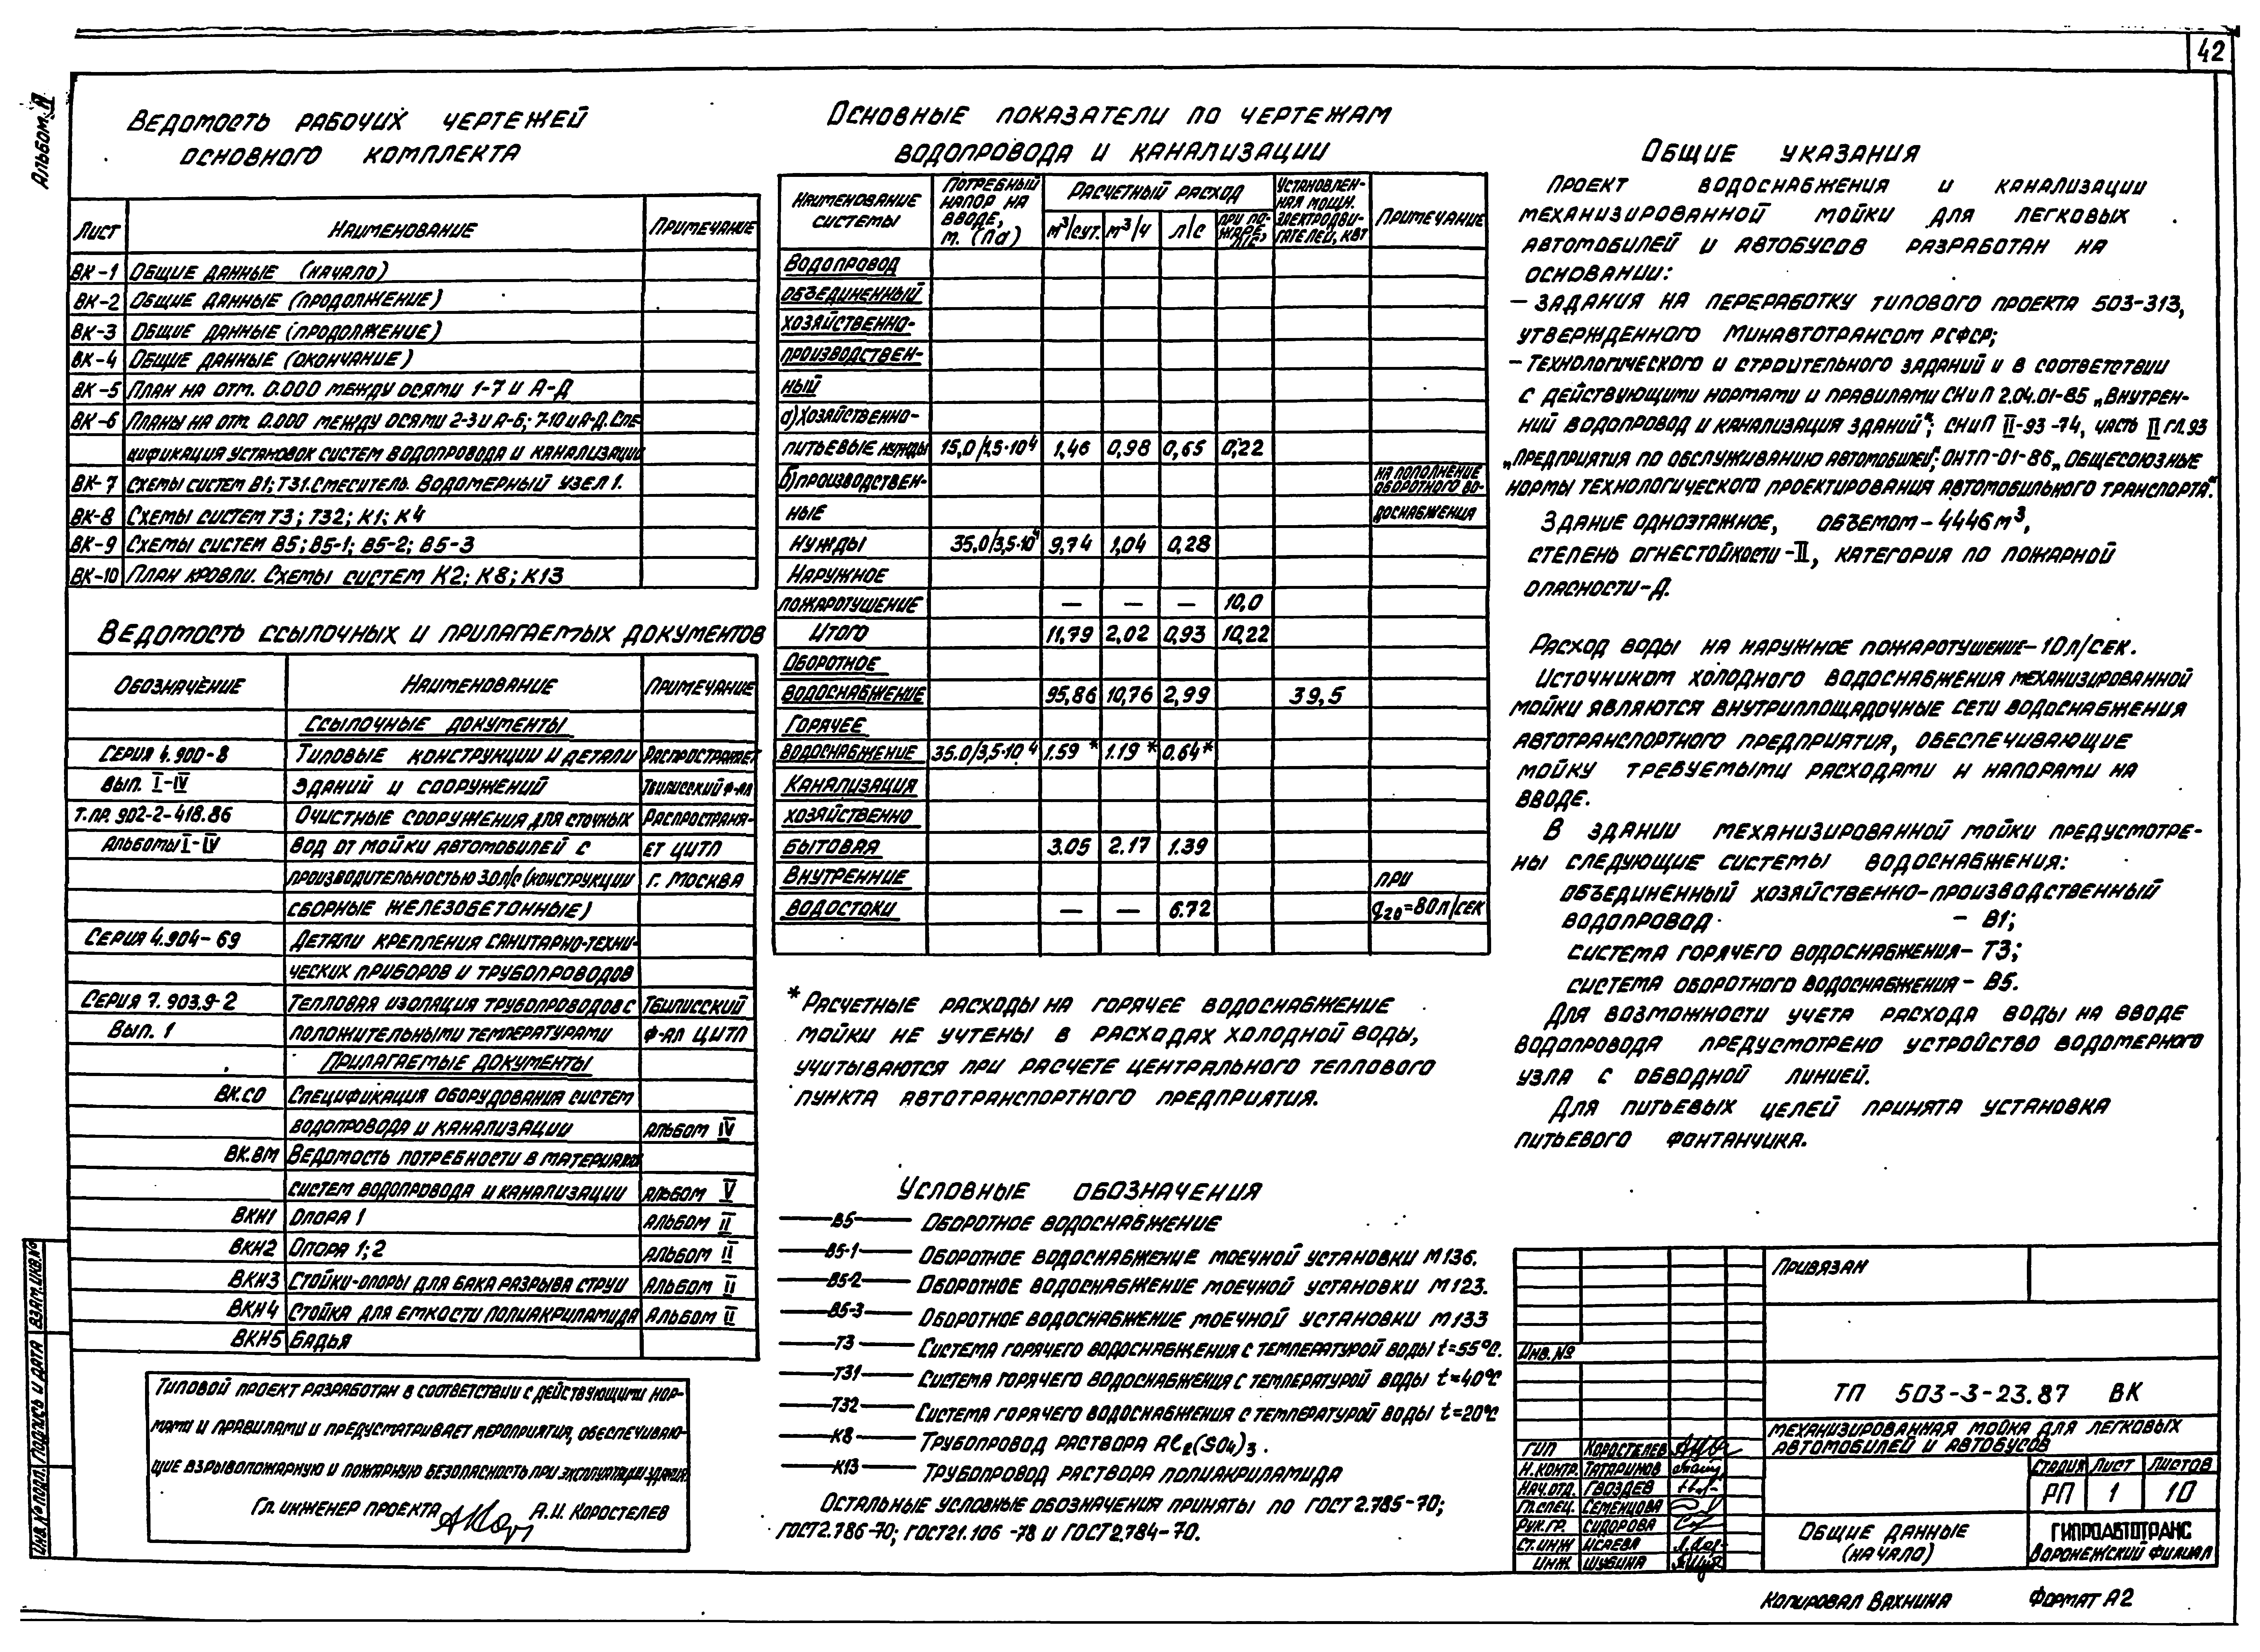 42
Альбом II
Ведомость рабочих чертежей
основного комплекта
Лист Наименование Примечание
ВК-1 Общие данные (начало)
ВК-2 Общие данные (продолжение)
ВК-3 Общие данные (продолжение)
ВК-4 Общие данные (окончание)
ВК-5 План на отм. 0.000 между осями 1-7 и А-Д
ВК-6 Планы на отм. 0.000 между осями 2-3 и А-Б; 7-10 и А-Д. Спе
цификация установок систем водопровода и канализации
ВК-7 Схемы систем В1; Т31. Смеситель. Водомерный узел 1.
ВК-8 Схемы систем Т3; Т32; К1; К4
ВК-9 Схемы систем В5; В5-1; В5-2; В5-3
ВК-10 План кровли. Схемы систем К2; К8; К13
Ведомость ссылочных и прилагаемых документов
Обозначение Наименование Примечание
Ссылочные документы
Серия 4.900-8 Типовые конструкции и детали Распространяет
Вып. I-IV зданий и сооружений Тбилисский ф-ал
Т.пр. 902-2-418.86 Очистные сооружения для сточных Распространя-
Альбомы I-IV вод от мойки автомобилей с ет ЦИТП
производительностью 3.0 л/с (конструкции г. Москва
сборные железобетонные)
Серия 4.904-69 Детали крепления санитарно-техни-
ческих приборов и трубопроводов
Серия 7.903.9-2 Тепловая изоляция трубопроводов с Тбилисский
Вып. 1 положительными температурами ф-ал ЦИТП
Прилагаемые документы
ВК.СО Спецификация оборудования систем
водопровода и канализации Альбом IV
ВК.ВМ Ведомость потребности в материалах
систем водопровода и канализации Альбом V
ВКН1 Опора 1 Альбом II
ВКН2 Опора 1; 2 Альбом II
ВКН3 Стойки-опоры для бака разрыва струи Альбом II
ВКН4 Стойка для емкости полиакриламида Альбом II
ВКН5 Бадья
Типовой проект разработан в соответствии с действующими нор-
мами и правилами и предусматривает мероприятия, обеспечиваю-
щие взрывопожарную и пожарную безопасность при эксплуатации здания
Гл. инженер проекта А.И. Коростелев
Основные показатели по чертежам
водопровода и канализации
Наименование системы Потребный напор на вводе, м. (Па) Расчетный расход Установлен-ная мощн. электродви-гателей, квт Примечание
м³/сут. м³/ч л/с при по-жаре, л/с
Водопровод
объединенный
хозяйственно-
производствен-
ный
а) Хозяйственно-
питьевые нужды 15,0/1,5·10⁴ 1,46 0,98 0,65 0,22
б) производствен- на пополнение оборотного во-
ные доснабжения
нужды 35,0/3,5·10⁴ 9,74 1,04 0,28
Наружное
пожаротушение — — — 10,0
Итого 11,79 2,02 0,93 10,22
Оборотное
водоснабжение 95,86 10,76 2,99 39,5
Горячее
водоснабжение 35.0/3,5·10⁴ 1.59* 1.19* 0.64*
Канализация
хозяйственно
бытовая 3.05 2.17 1.39
Внутренние при
водостоки — — 6.72 q20=80л/сек
* Расчетные расходы на горячее водоснабжение
мойки не учтены в расходах холодной воды,
учитываются при расчете центрального теплового
пункта автотранспортного предприятия.
Условные обозначения
В5 Оборотное водоснабжение
В5-1 Оборотное водоснабжение моечной установки М136.
В5-2 Оборотное водоснабжение моечной установки М123.
В5-3 Оборотное водоснабжение моечной установки М133
Т3 Система горячего водоснабжения с температурой воды t=55°С.
Т31 Система горячего водоснабжения с температурой воды t=40°С
Т32 Система горячего водоснабжения с температурой воды t=20°С
К8 Трубопровод раствора Al2(SO4)3.
К13 Трубопровод раствора полиакриламида
Остальные условные обозначения приняты по ГОСТ 2.785-70;
ГОСТ 2.786-70; ГОСТ 21.106-78 и ГОСТ 2.784-70.
Общие указания
Проект водоснабжения и канализации
механизированной мойки для легковых
автомобилей и автобусов разработан на
основании:
- задания на переработку типового проекта 503-313,
утвержденного Минавтотрансом РСФСР;
- технологического и строительного заданий и в соответствии
с действующими нормами и правилами СНиП 2.04.01-85 „Внутрен-
ний водопровод и канализация зданий"; СНиП II-93-74, часть II гл. 93
„Предприятия по обслуживанию автомобилей"; ОНТП-01-86 „Общесоюзные
нормы технологического проектирования автомобильного транспорта".
Здание одноэтажное, объемом - 4446 м³,
степень огнестойкости - II, категория по пожарной
опасности - Д.
Расход воды на наружное пожаротушение - 10 л/сек.
Источником холодного водоснабжения механизированной
мойки являются внутриплощадочные сети водоснабжения
автотранспортного предприятия, обеспечивающие
мойку требуемыми расходами и напорами на
вводе.
В здании механизированной мойки предусмотре-
ны следующие системы водоснабжения:
объединенный хозяйственно-производственный
водопровод - В1;
система горячего водоснабжения - Т3;
система оборотного водоснабжения - В5.
Для возможности учета расхода воды на вводе
водопровода предусмотрено устройство водомерного
узла с обводной линией.
Для питьевых целей принята установка
питьевого фонтанчика.
Привязан
Инв.№
ТП 503-3-23.87 ВК
Механизированная мойка для легковых
автомобилей и автобусов
ГИП Коростелев
Н.контр. Татаринов
Нач.отд. Гвоздев
Гл.спец. Семенцова
Рук.гр. Сидорова
Ст.инж Исаева
Инж Шубина
Стадия Лист Листов
РП 1 10
Общие данные
(начало)
ГИПРОАВТОТРАНС
Воронежский филиал
Копировал Вахнина Формат А2
Инв.№ подл. Подпись и дата Взам.инв.№